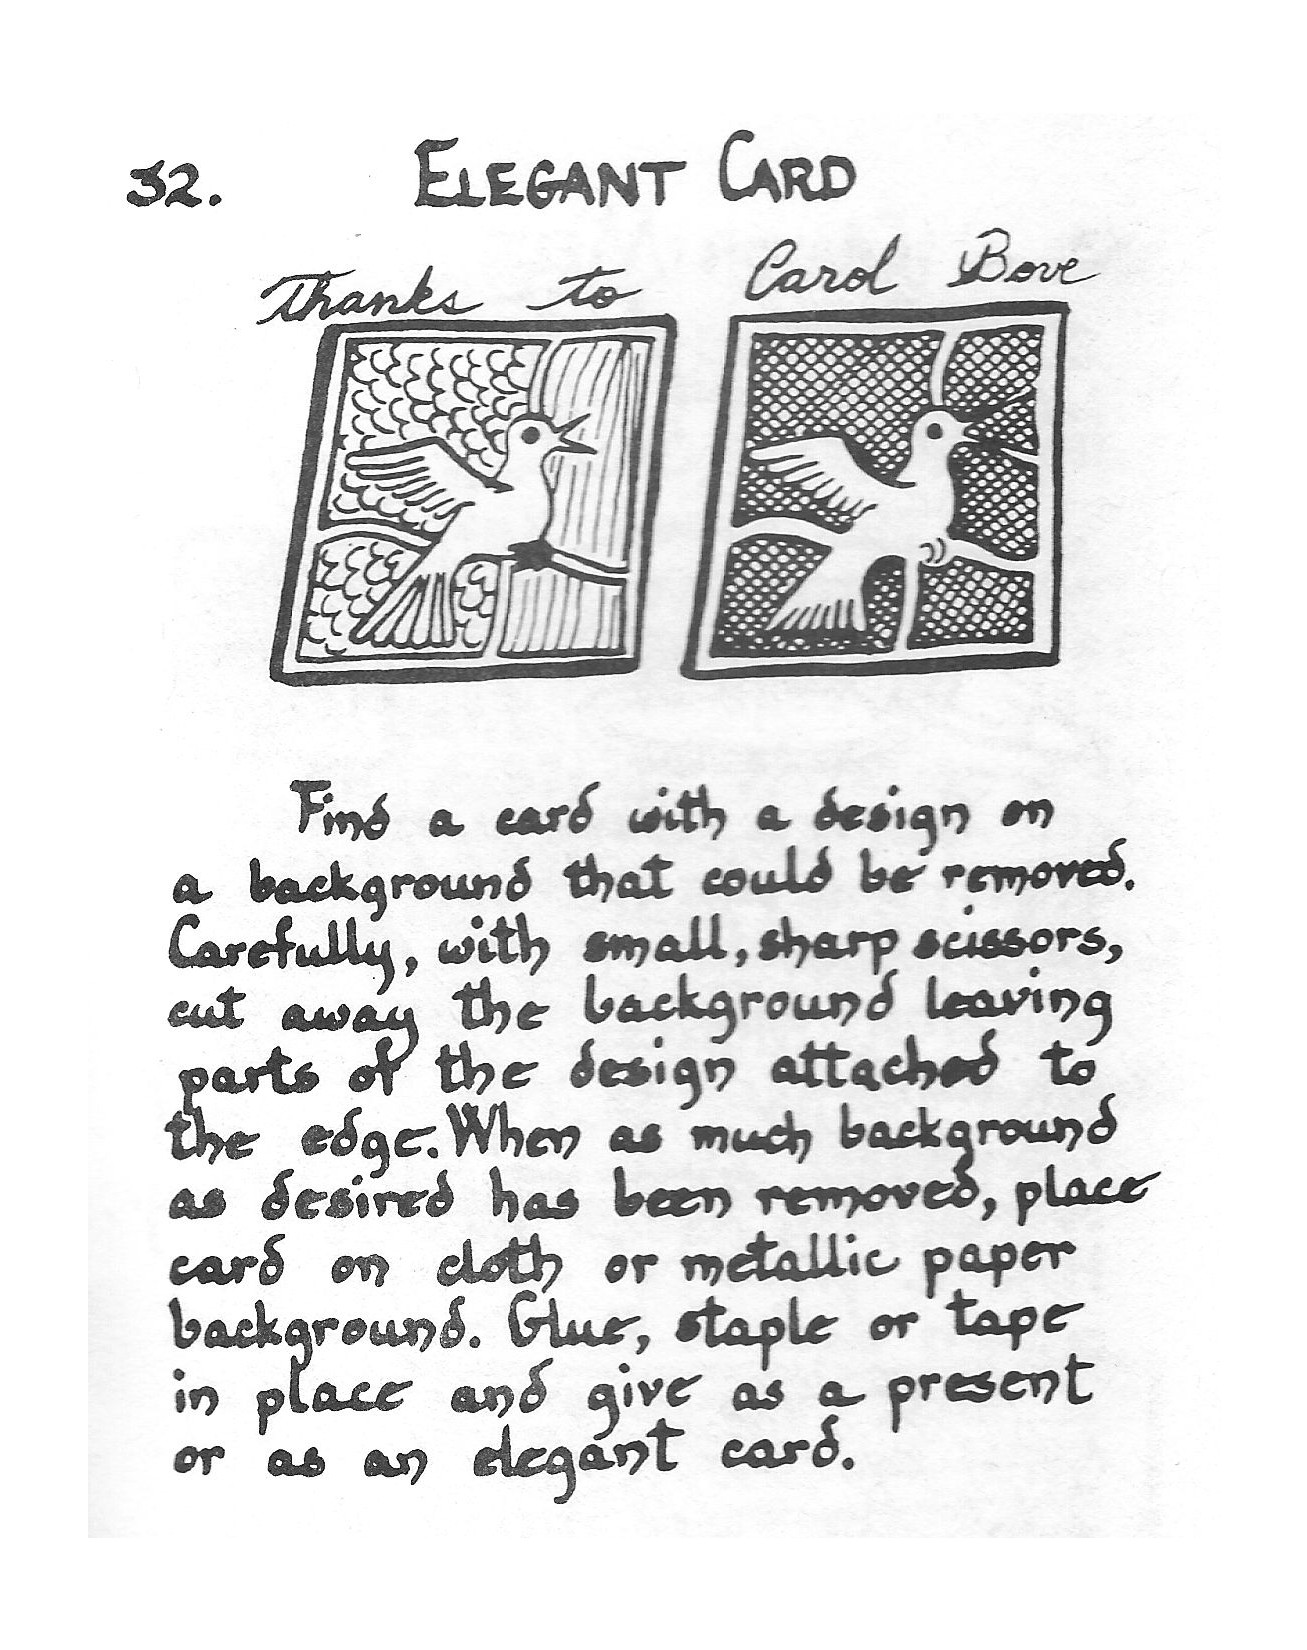 32. ELEGANT CARD
Thanks to Carol Bove
Find a card with a design on
a background that could be removed.
Carefully, with small, sharp scissors,
cut away the background leaving
parts of the design attached to
the edge. When as much background
as desired has been removed, place
card on cloth or metallic paper
background. Glue, staple or tape
in place and give as a present
or as an elegant card.